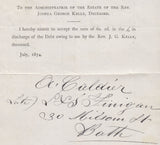 To the Administrator of the Estate of the Rev.
Joshua George Kelly, Deceased.
I hereby consent to accept the sum of 8s. od. in the £ in
discharge of the Debt owing to me by the Rev. J. G. Kelly,
deceased.
July, 1874.
(late) L. D. Finigan
30 Milsom St.
Bath